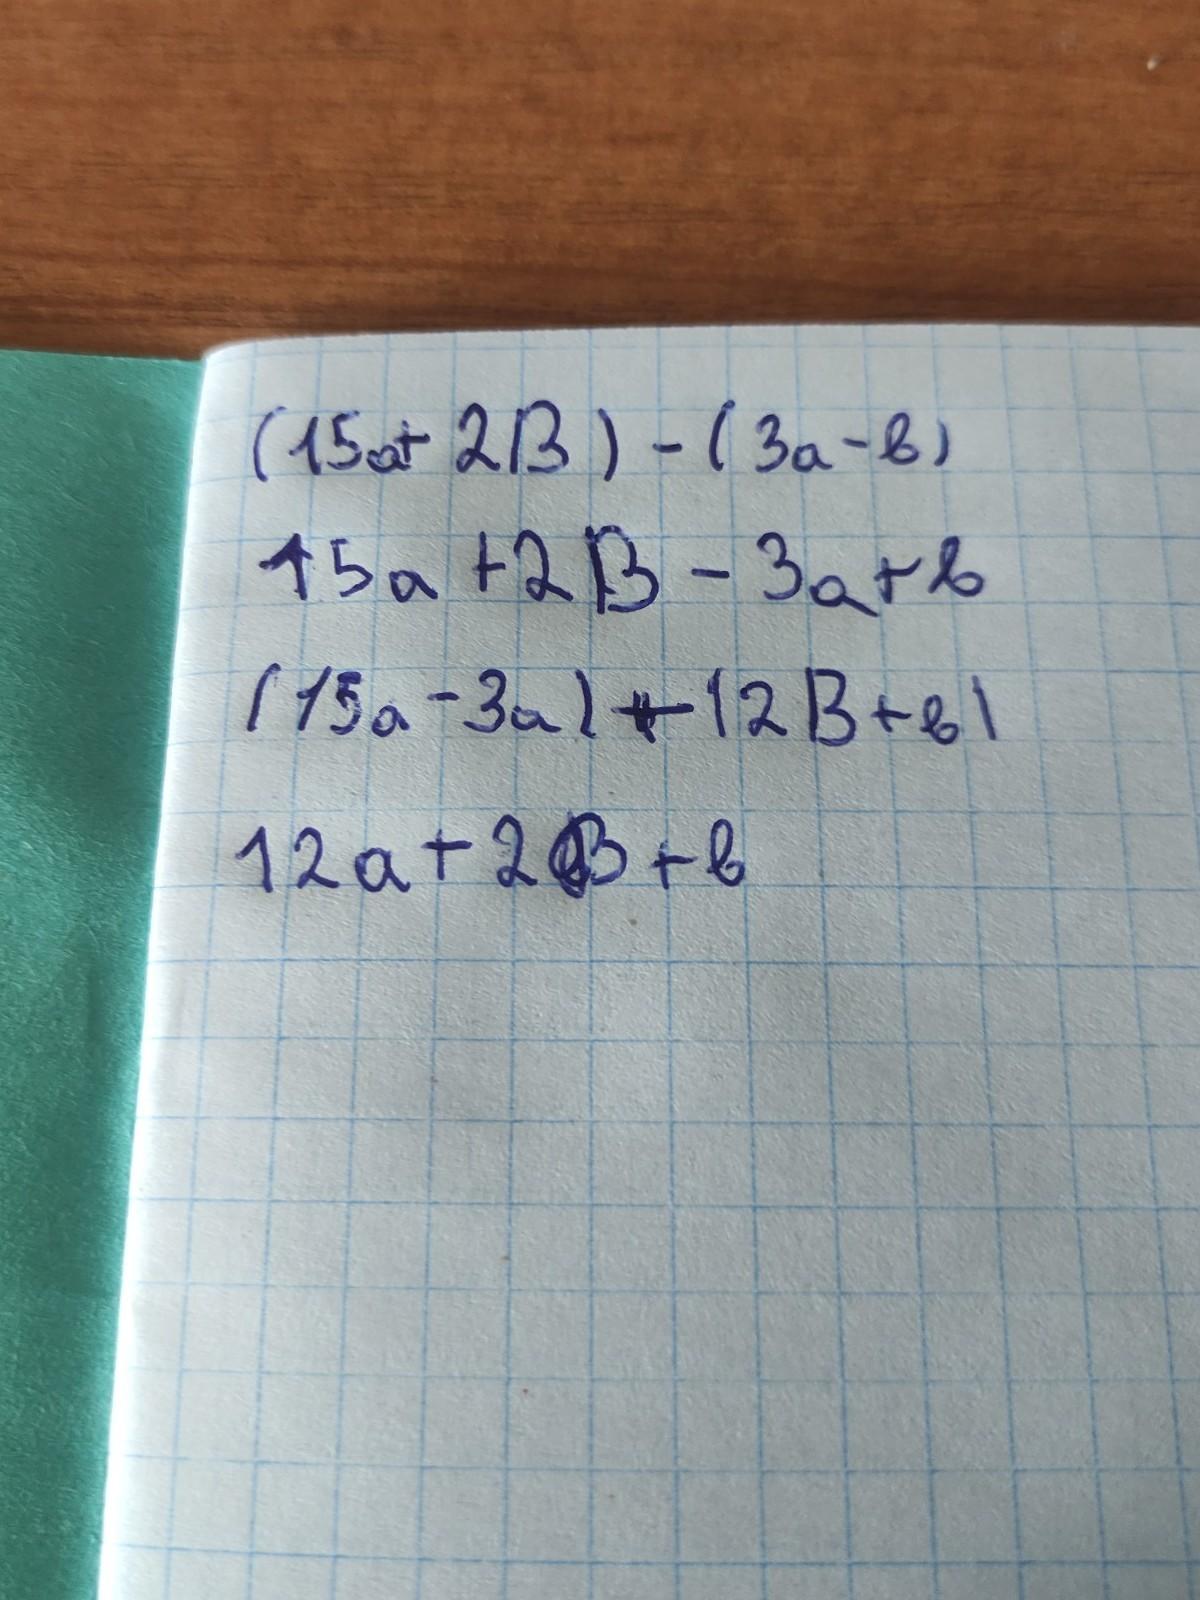 (15a+ 2B) - (3a - b)
15a + 2B - 3a + b
(15a - 3a) + (2B + b)
12a + 2B + b